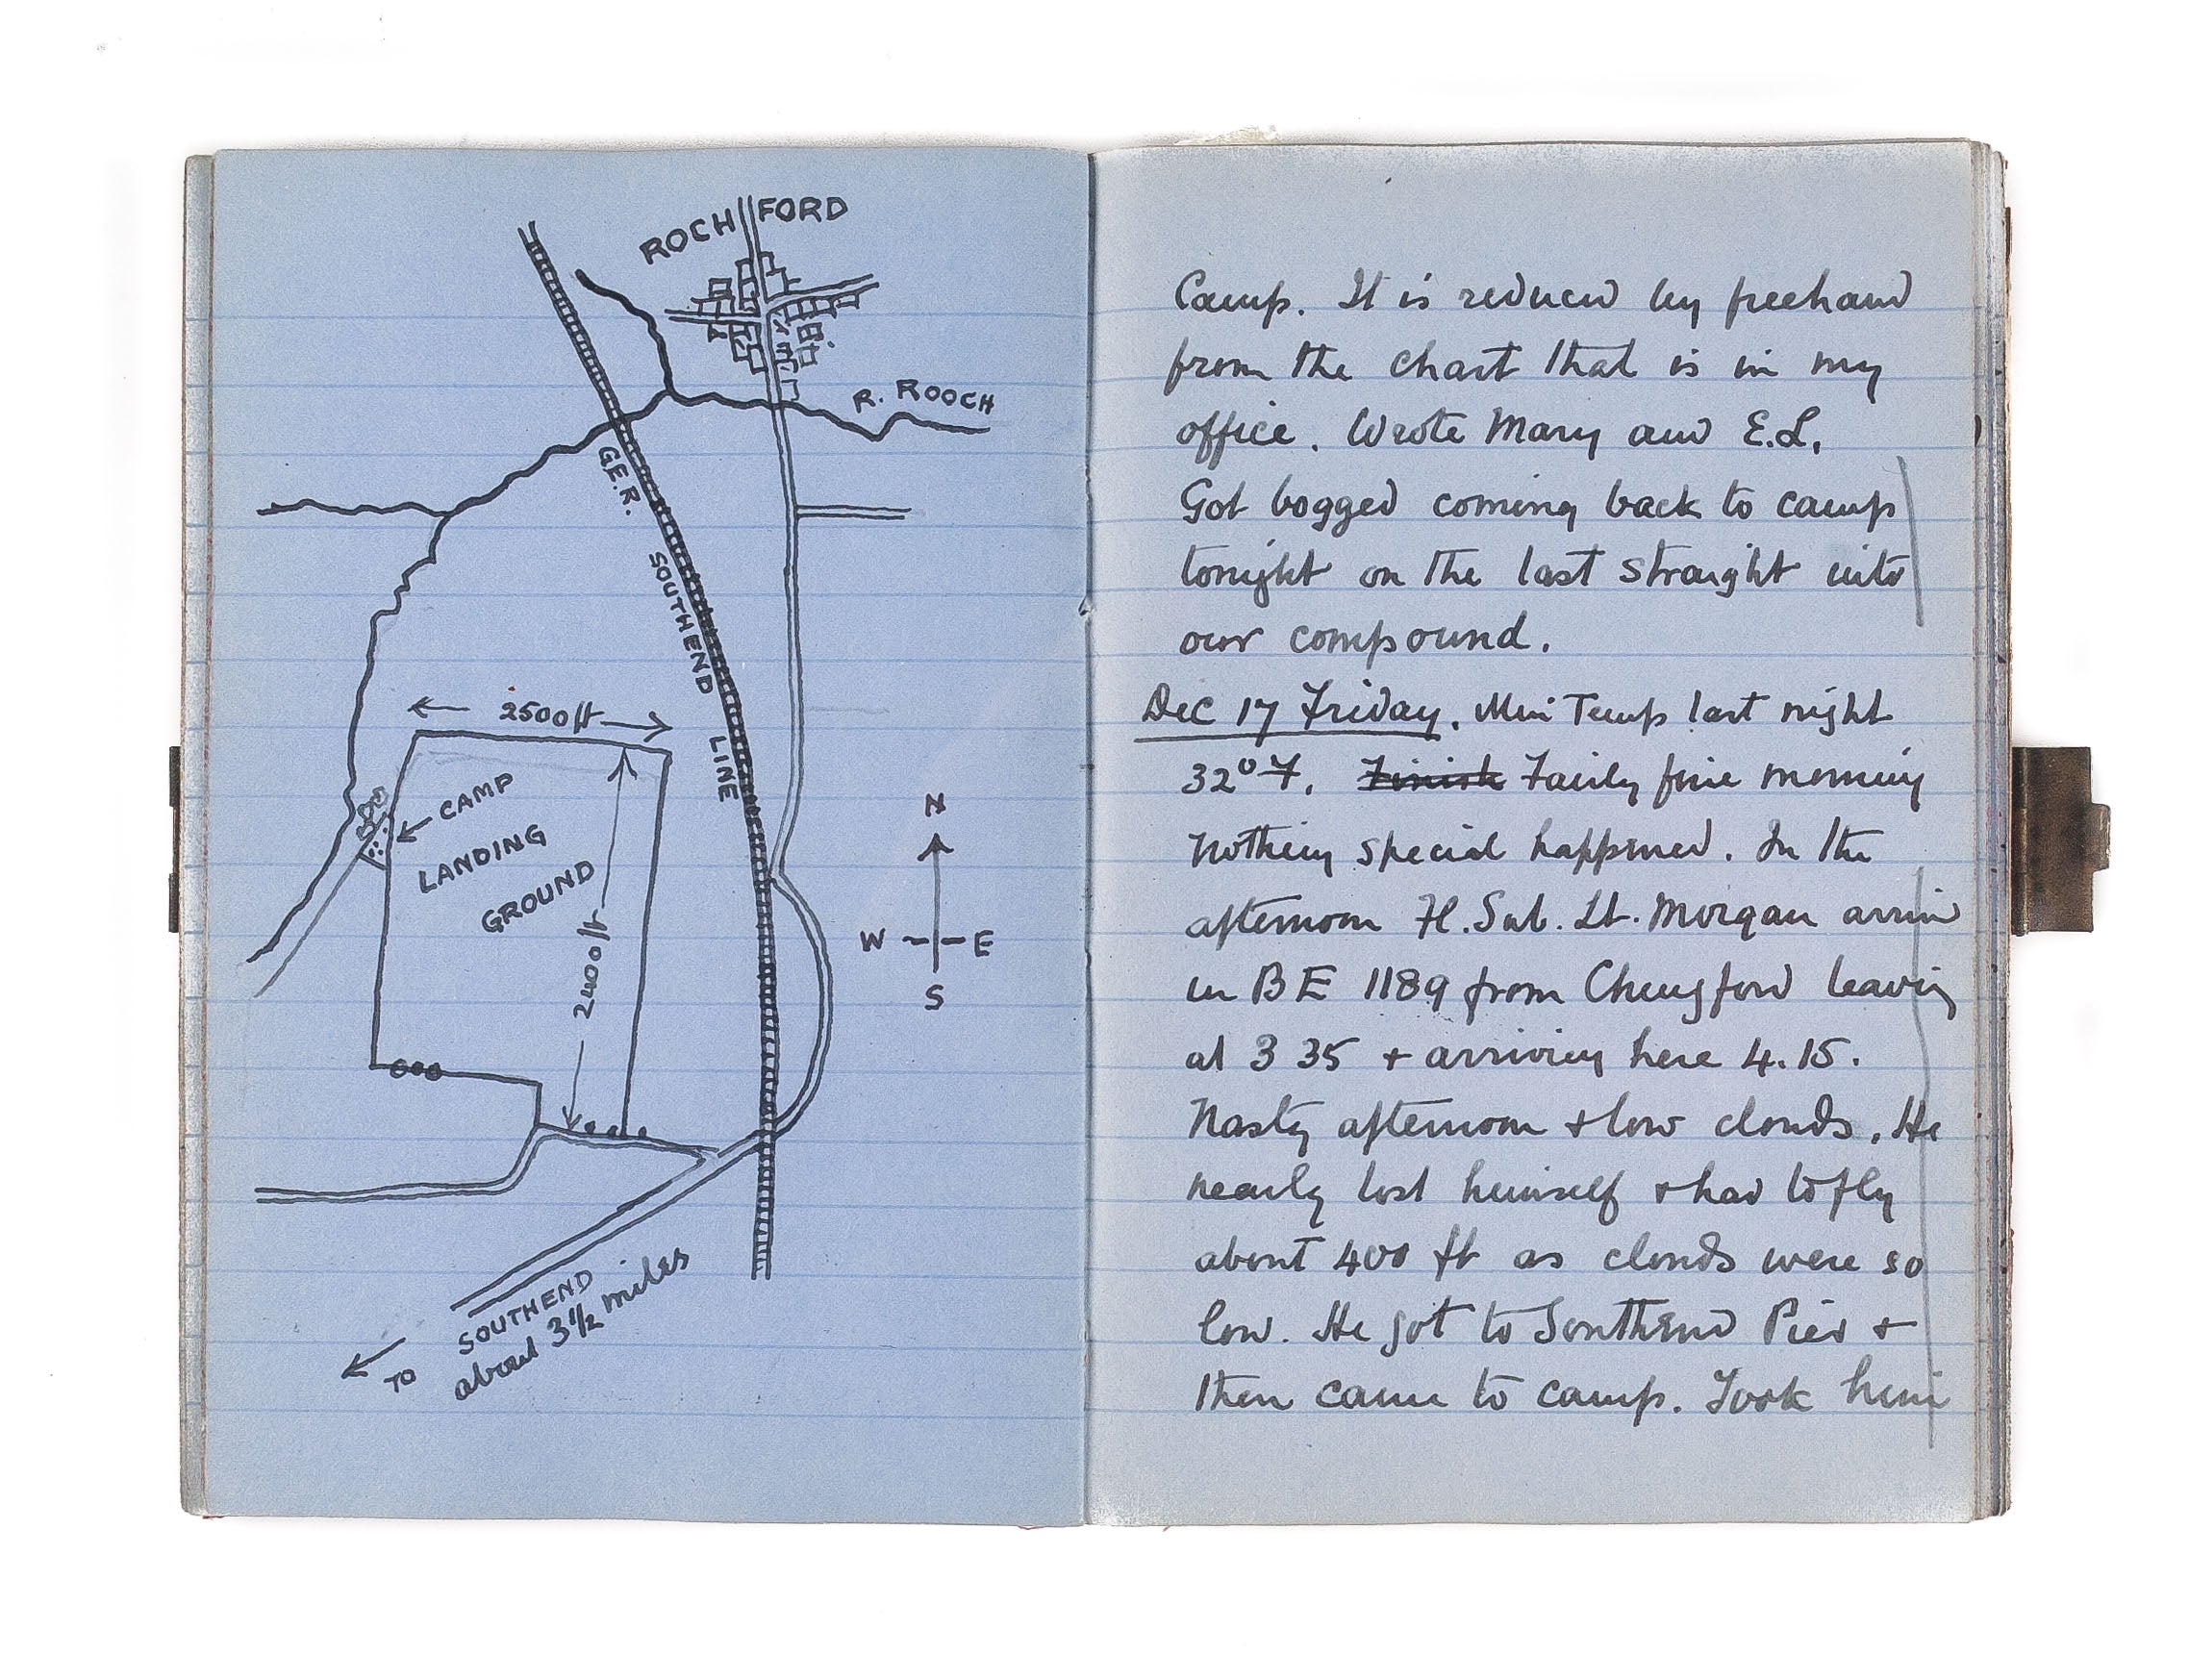 ROCHFORD
R. ROOCH
G.E.R. SOUTHEND LINE
2500ft
CAMP
LANDING
GROUND
2400ft
N
W E
S
TO SOUTHEND
about 3 1/2 miles
Camp. It is reduced by freehand
from the chart that is in my
office. Wrote Mary and E.L.
Got bogged coming back to camp
tonight on the last straight into
our compound.
Dec 17 Friday. Min Temp last night
32° F. Finish Fairly fine morning
Nothing special happened. In the
afternoon Fl. Sub. Lt. Morgan arriv
in BE 1189 from Chingford leaving
at 3 35 + arriving here 4.15.
Nasty afternoon + low clouds. He
nearly lost himself + had to fly
about 400 ft as clouds were so
low. He got to Southend Pier +
then came to camp. Took him